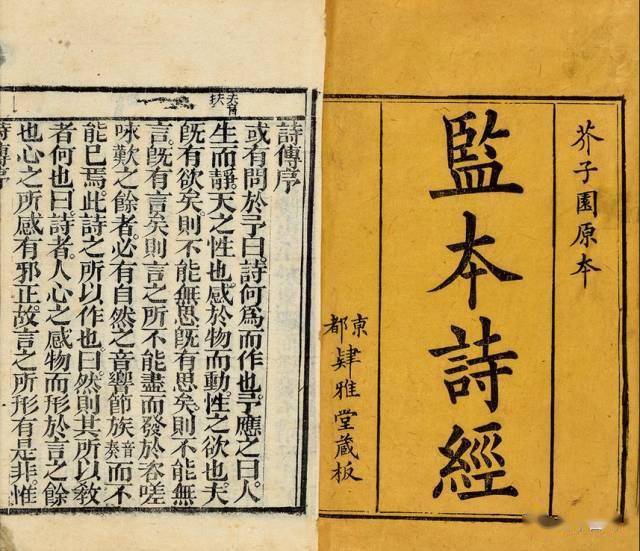 芥子園原本
監本詩經
東都肄雅堂蔵板
夫音扶
詩傳序
或有問於予曰。詩何爲而作也。予應之曰。人
生而靜。天之性也。感於物而動。性之欲也。夫
旣有欲矣。則不能無思。旣有思矣。則不能無
言。旣有言矣。則言之所不能盡而發於咨嗟
咏歎之餘者。必有自然之音響節族音奏而不
能已焉。此詩之所以作也。曰。然則其所以敎
者何也。曰。詩者。人心之感物而形於言之餘
也。心之所感有邪正。故言之所形有是非。惟
詩傳序